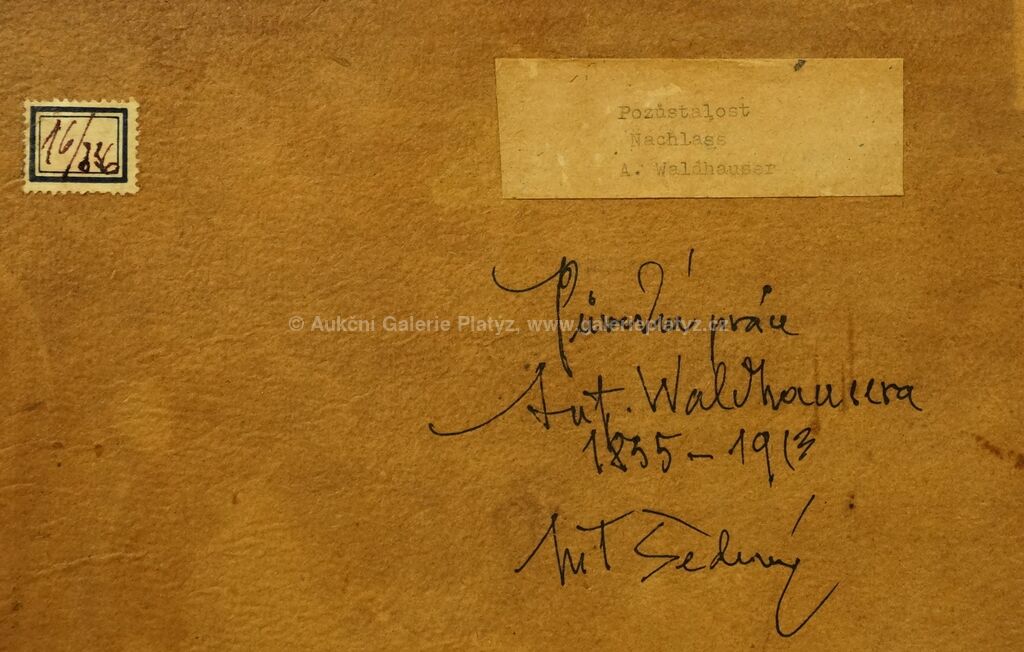 16/336
Pozůstalost
Nachlass
A. Waldhauser
© Aukční Galerie Platýz, www.galerieplatyz.cz
Původní práce
Ant. Waldhausera
1835-1913